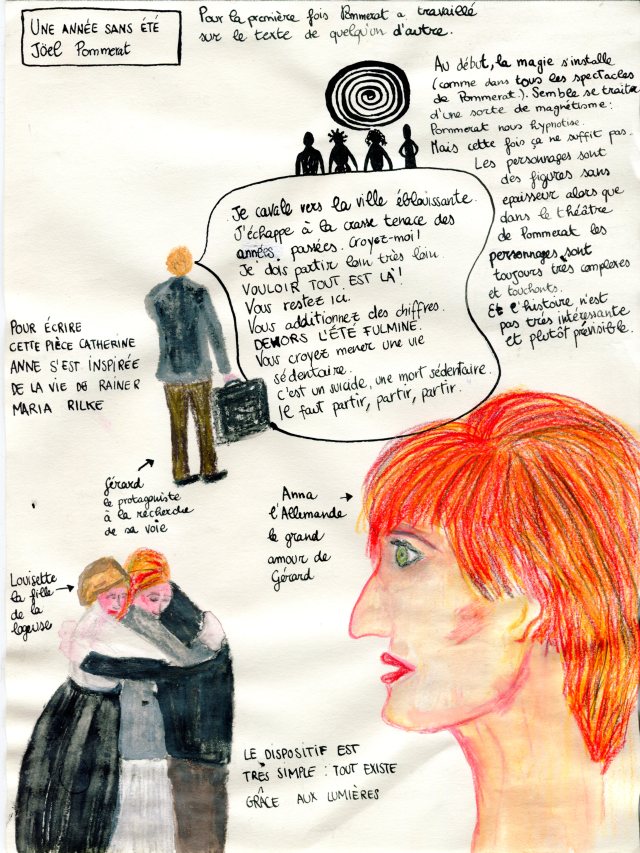 UNE ANNÉE SANS ÉTÉ
JÖEL POMMERAT
Pour la première fois Pommerat a travaillé
sur le texte de quelqu'un d'autre.
Au début, la magie s'installe
(comme dans tous les spectacles
de Pommerat). Semble se traiter
d'une sorte de magnétisme:
Pommerat nous hypnotise.
Mais cette fois ça ne suffit pas.
Les personnages sont
des figures sans
epaisseur alors que
dans le théâtre
de Pommerat les
personnages sont
toujours très complexes
et touchants.
Et l'histoire n'est
pas très intéressante
et plutôt prévisible.
Je cavale vers la ville éblouissante.
J'échappe à la crasse tenace des
années passées. Croyez-moi!
Je dois partir loin très loin.
VOULOIR TOUT EST LÀ!
Vous restez ici.
Vous additionnez des chiffres.
DEHORS L'ÉTÉ FULMINE.
Vous croyez mener une vie
sédentaire.
C'est un suicide, une mort sédentaire.
Il faut partir, partir, partir.
POUR ÉCRIRE
CETTE PIÈCE CATHERINE
ANNE S'EST INSPIRÉE
DE LA VIE DE RAINER
MARIA RILKE
Gérard
le protagoniste
à la recherche
de sa voie
Anna
l'Allemande
le grand
amour de
Gérard
Louisette
la fille
de la
logeuse
LE DISPOSITIF EST
TRÈS SIMPLE : TOUT EXISTE
GRÂCE AUX LUMIÈRES